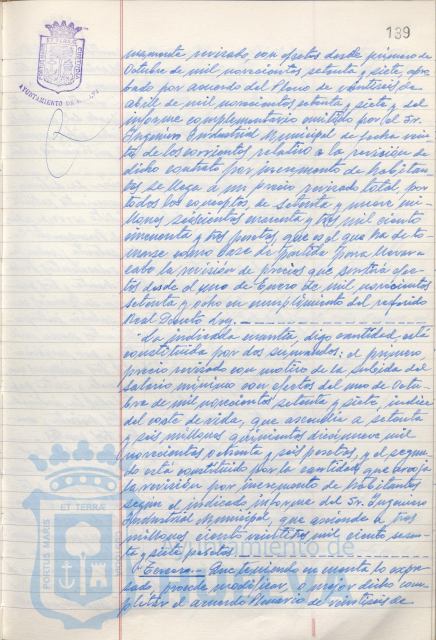 139
AYUNTAMIENTO DE
mamente revisado, con efectos desde primero de
Octubre de mil novecientos setenta y siete, apro-
bado por acuerdo del Pleno de veintiseis de
abril de mil novecientos setenta y siete y del
informe complementario emitido por el Sr.
Ingeniero Industrial Municipal de fecha vein-
te de los corrientes relativo a la revisión de
dicho contrato por incremento de habitan-
tes se llega a un precio revisado total, por
todos los conceptos, de setenta y nueve mi-
llones seiscientos cuarenta y tres mil ciento
cincuenta y tres pesetas, que es el que ha de to-
marse como base de partida para llevar a
cabo la revisión de precios que surtirá efec-
tos desde el uno de Enero de mil novecientos
setenta y ocho en cumplimiento del referido
Real Decreto Ley.
La indicada cuantía, digo cantidad, está
constituida por dos sumandos: el primero,
precio revisado con motivo de la subida del
salario mínimo con efectos del uno de Octu-
bre de mil novecientos setenta y siete, indice
del coste de vida, que asciende a setenta
y seis millones quinientos diecinueve mil
novecientos ochenta y seis pesetas, y el segun-
do está constituido por la cantidad que arroja
la revisión por incremento de habitantes
según el indicado informe del Sr. Ingeniero
Industrial Municipal, que asciende a tres
millones ciento veintitres mil ciento sesen-
ta y siete pesetas.
Tercero.- Que teniendo en cuenta lo expre-
sado procede modificar, o mejor dicho com-
pletar el acuerdo Plenario de veintiseis de
PORTUS MARIS
ET TERRAE
Ayuntamiento de